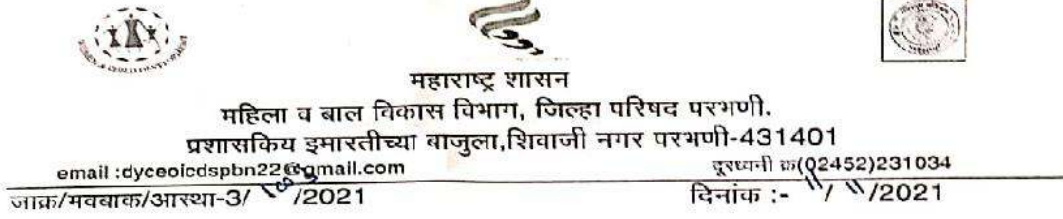 महाराष्ट्र शासन
महिला व बाल विकास विभाग, जिल्हा परिषद परभणी.
प्रशासकिय इमारतीच्या बाजुला,शिवाजी नगर परभणी-431401
email :dyceoicdspbn22@gmail.com दूरध्वनी क्र(02452)231034
जाक्र/मवबाक/आस्था-3/ /2021 दिनांक :- 11/ 11/2021